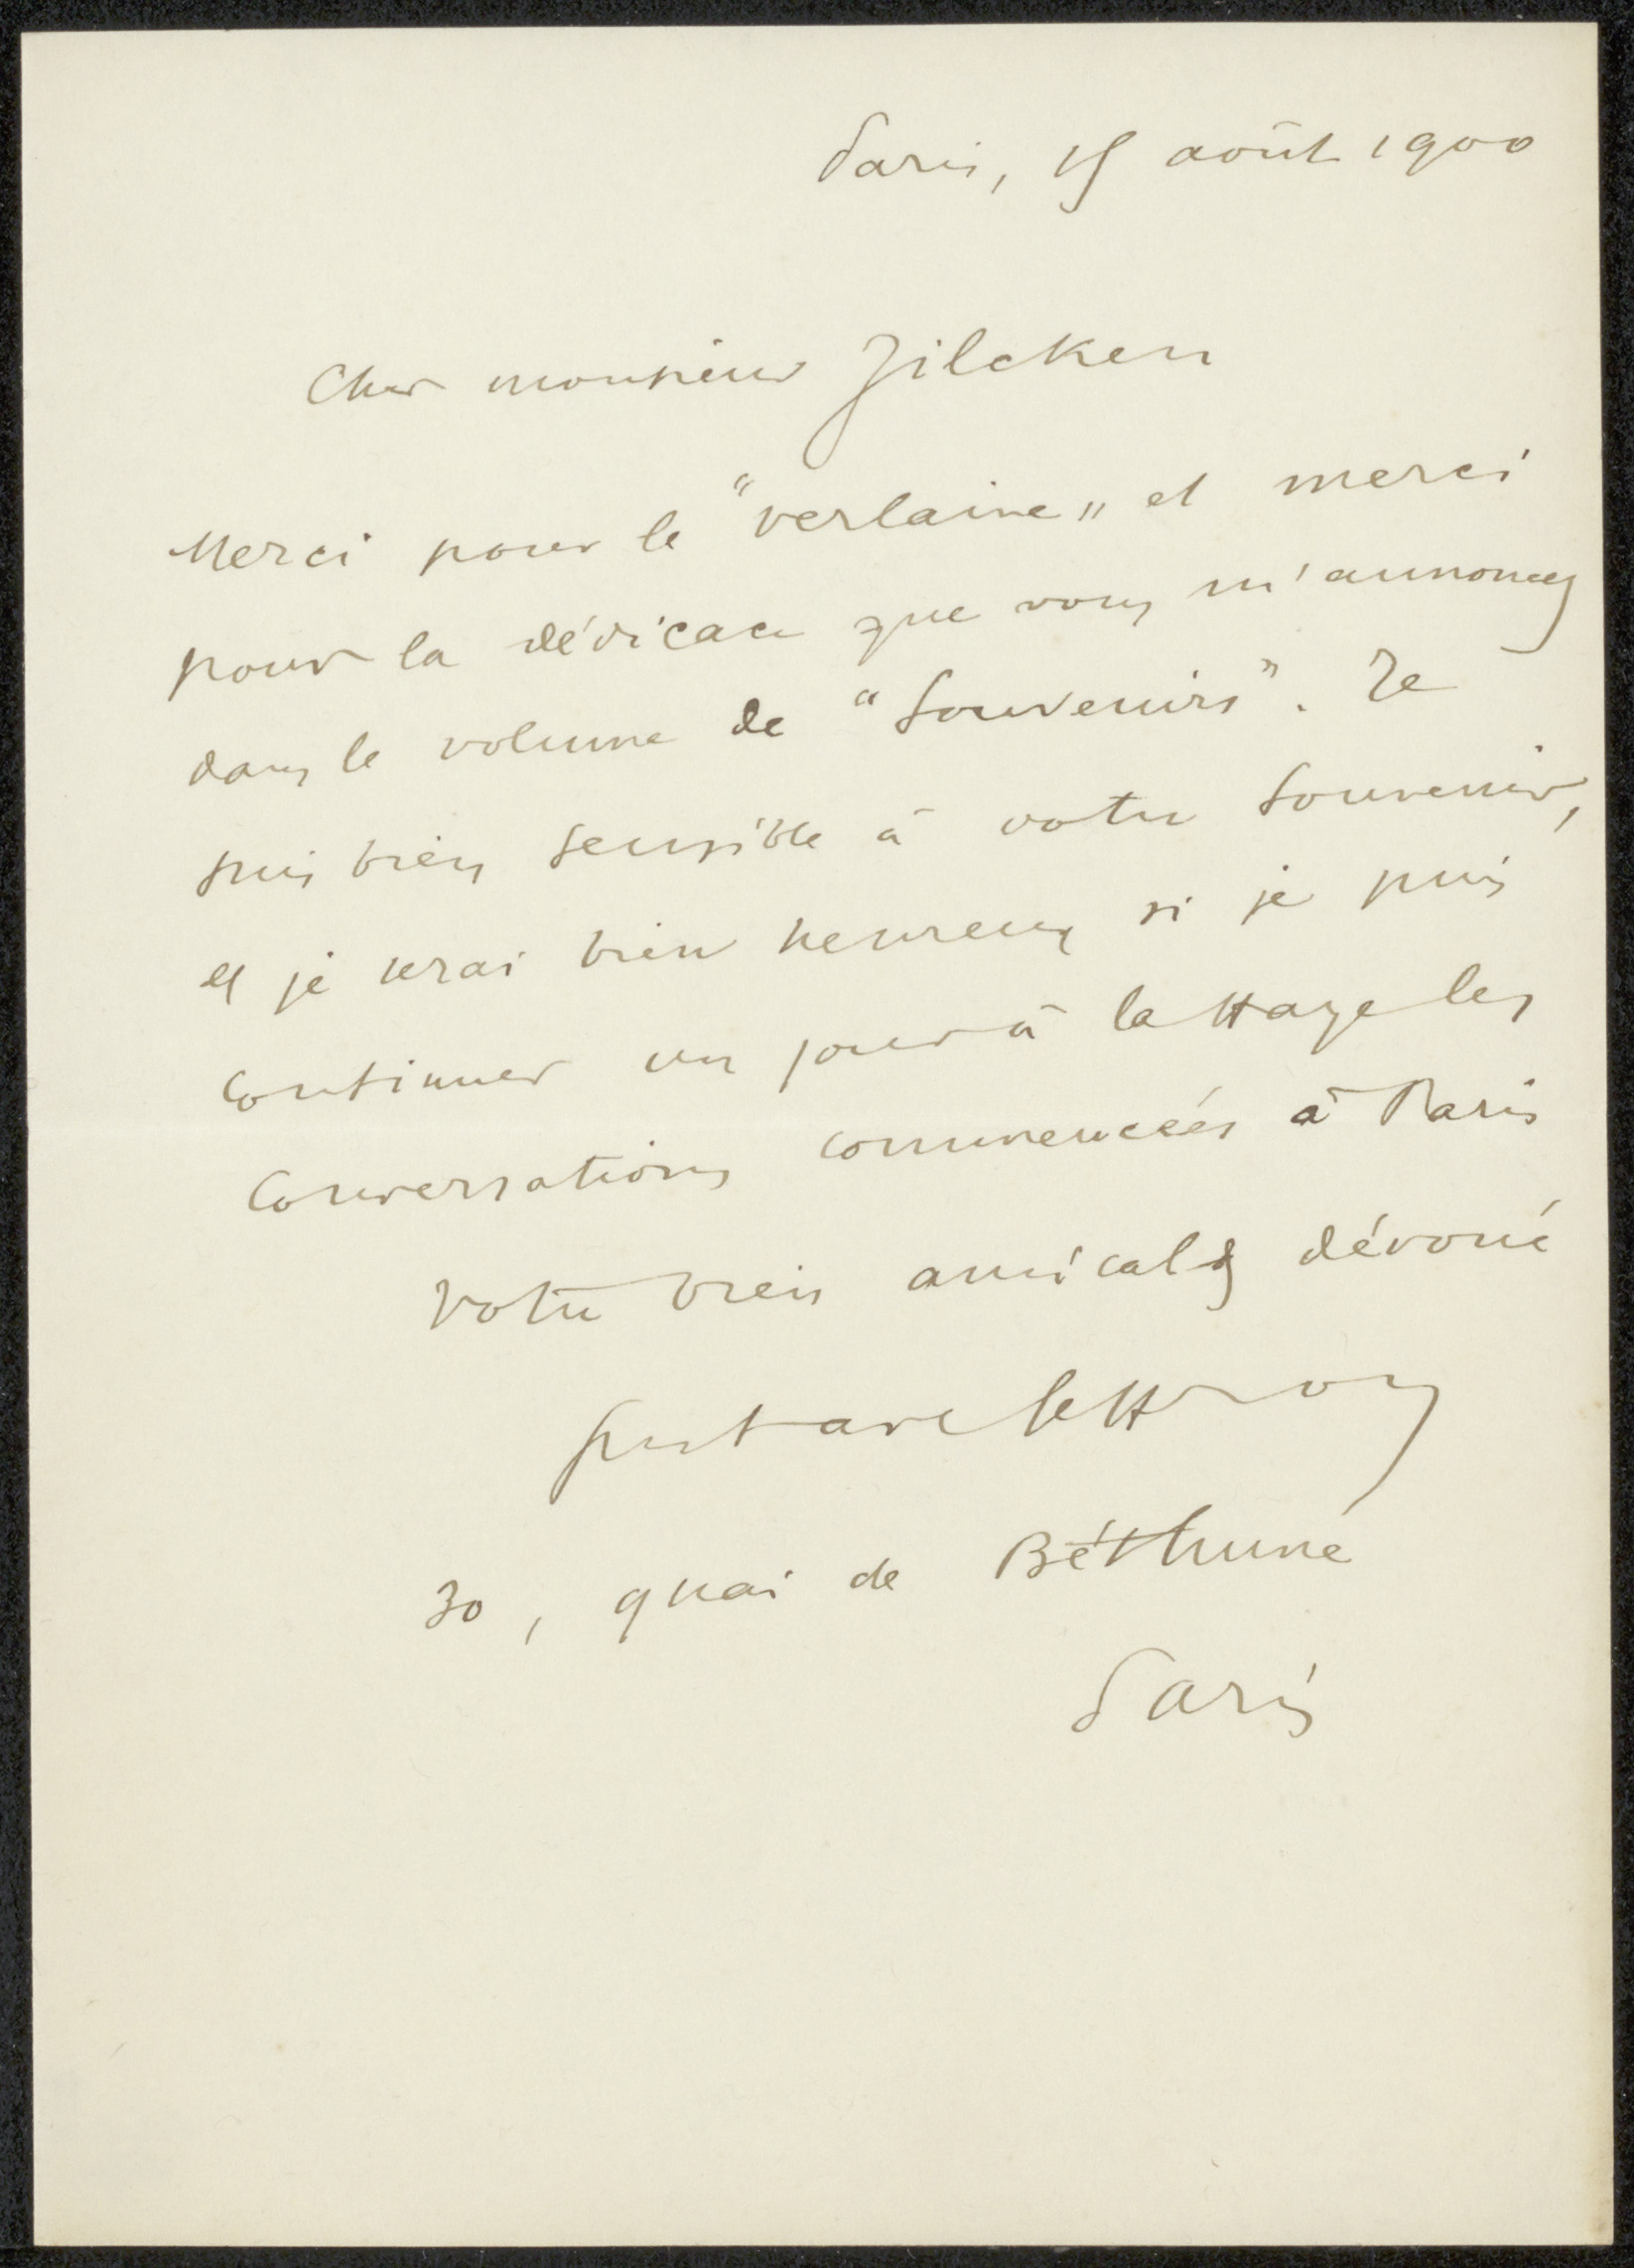 Paris, 15 août 1900
Cher monsieur Zilcken
Merci pour le "Verlaine" et merci
pour la dédicace que vous m'annoncez
dans le volume de "Souvenirs". Je
suis bien sensible à votre souvenir,
et je serai bien heureux si je puis
continuer un jour à la Haye les
conversations commencées à Paris
Votre bien amical & dévoué
Gustave Geffroy
30, quai de Béthune
Paris